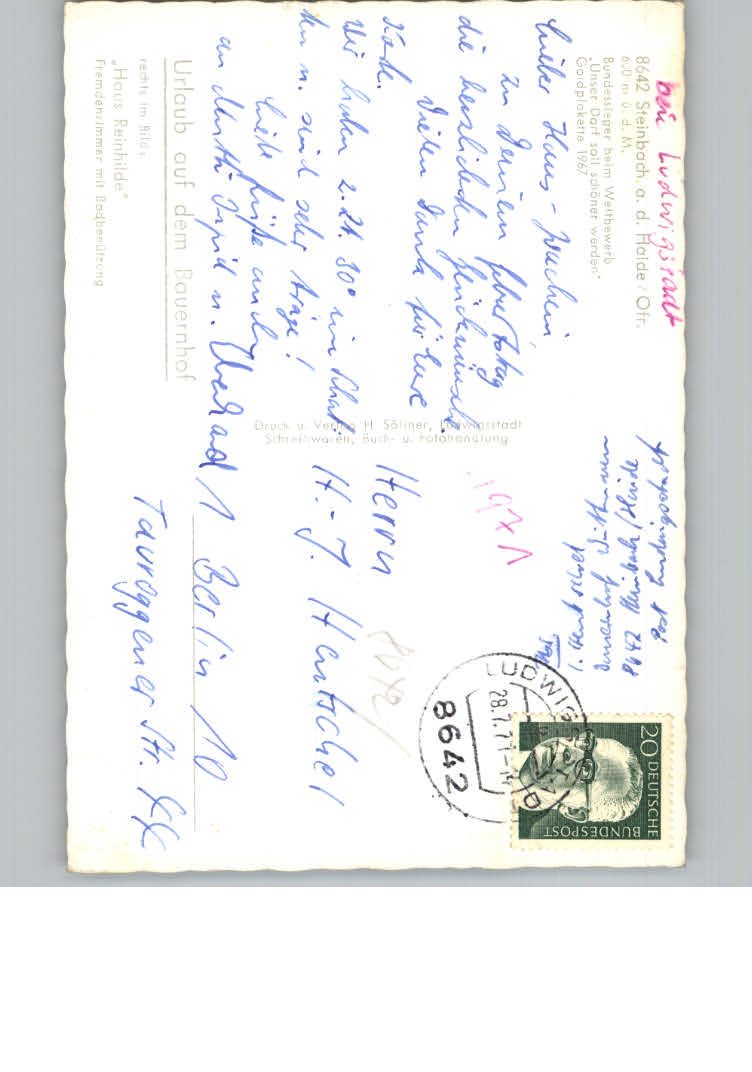 8642 Steinbach a. d. Haide / Ofr.
bei Ludwigsstadt
600 m ü. d. M.
Bundessieger beim Wettbewerb
„Unser Dorf soll schöner werden"
Goldplakette 1967
Lieber Hans-Joachim
zu Deinem Geburtstag
die herzlichsten Glückwünsche.
Vielen Dank für Eure
Karte.
Wir haben 2. Zt. 30° im Schat-
ten u. sind sehr träge!
Liebe Grüße auch
an Mutti, Ingrid u.
Urlaub auf dem Bauernhof
rechts im Bild:
„Haus Reinhilde"
Fremdenzimmer mit Badbenützung
Druck u. Verlag H. Söllner, Ludwigsstadt
Schreibwaren, Buch- u. Fotohandlung
8642 Steinbach/Haide
1971
LUDWIGSSTADT
28.7.71-14
8642
20 DEUTSCHE
BUNDESPOST
Herrn
H.-J. Hentschel
1 Berlin 10
Tauroggener Str.